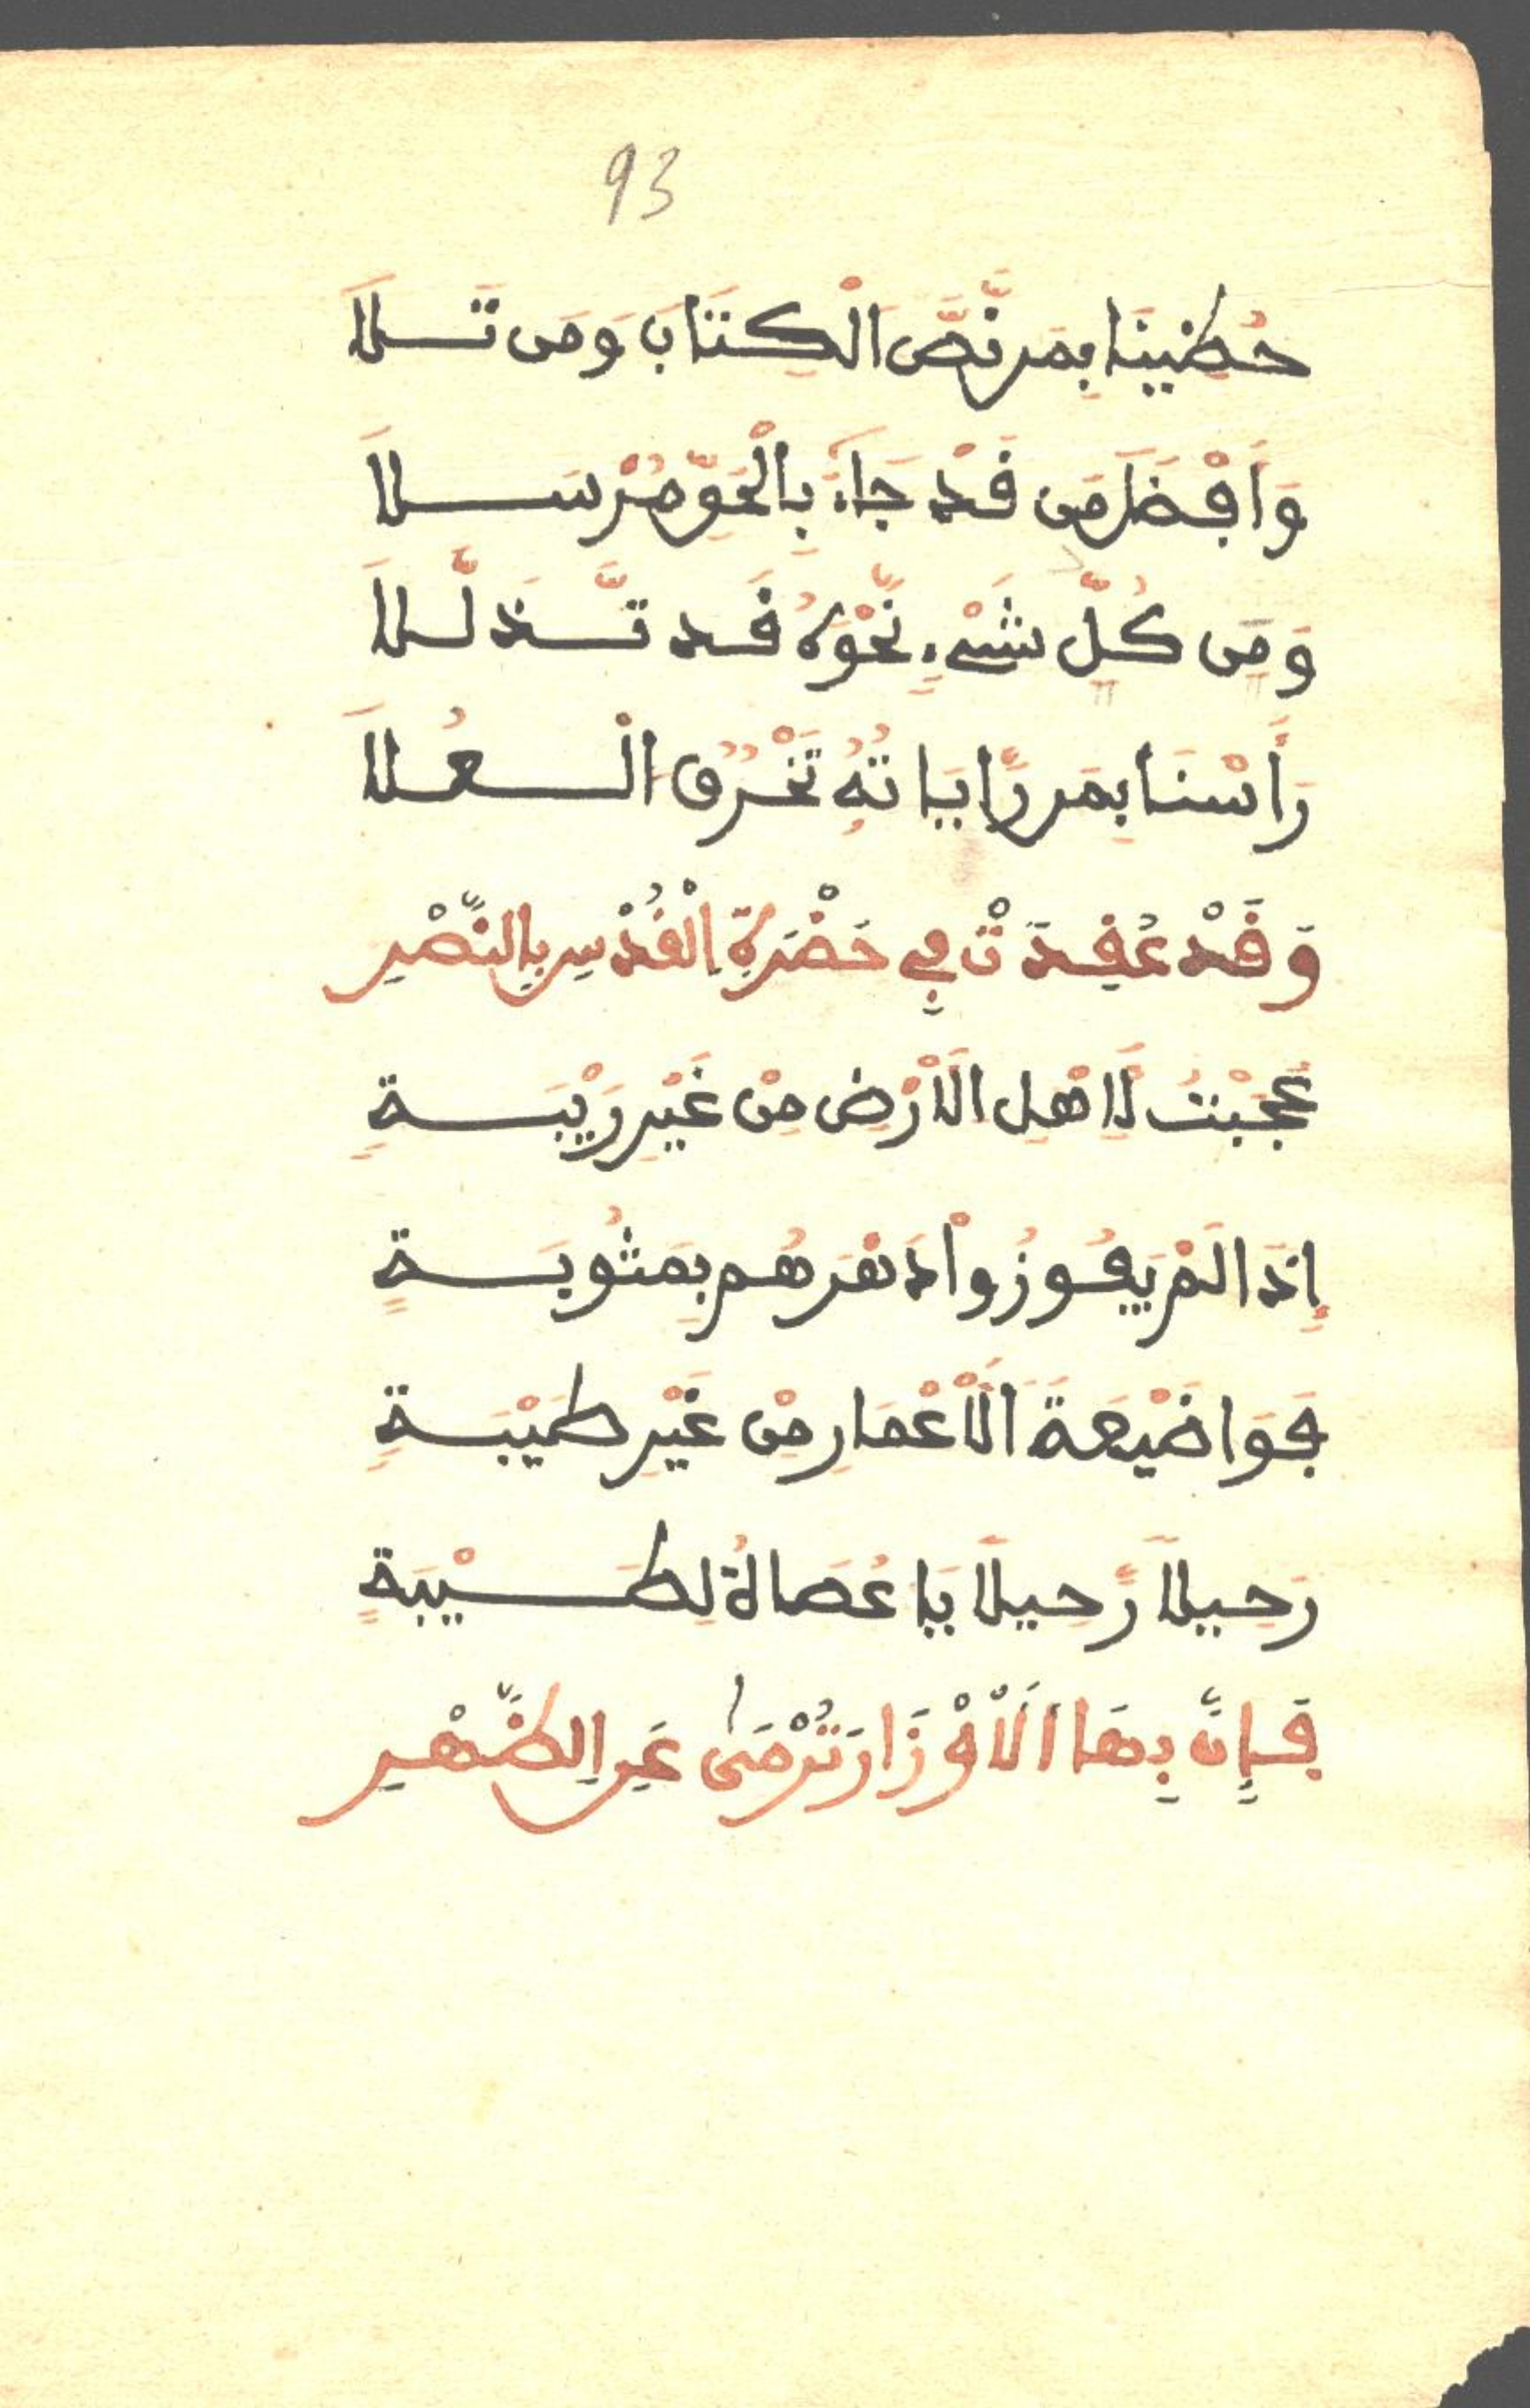 93
حُظِينَا بِمَن نَّصَّ الْكِتَابَ وَمَن تَلَا
وَأَفْضَلَ مَن قَدْ جَاءَ بِالْحَقِّ مُرْسَلَا
وَمَن كُلِّ شَيْءٍ نَّحْوَهُ قَد تَّذَلَّلَا
رَأَسْنَا بِمَن رَّايَاتُهُ تَخْرُقُ الْعُلَا
وَقَدْ عُقِدَتْ فِي حَضْرَةِ الْقُدْسِ بِالنَّصْرِ
عَجِبْتُ لِأَهْلِ الْأَرْضِ مِنْ غَيْرِ رَيْبَةِ
إِذَا لَمْ يَفُوزُوا دَهْرَهُم بِمَثُوبَةٍ
فَوَاضَيْعَةَ الْأَعْمَارِ مِنْ غَيْرِ طَيْبَةِ
رَحِيلًا رَّحِيلًا يَا عُصَاةُ لِطَيْبَةٍ
فَإِنَّ بِهَا الْأَوْزَارَ تُرْمَى عَنِ الظَّهْرِ